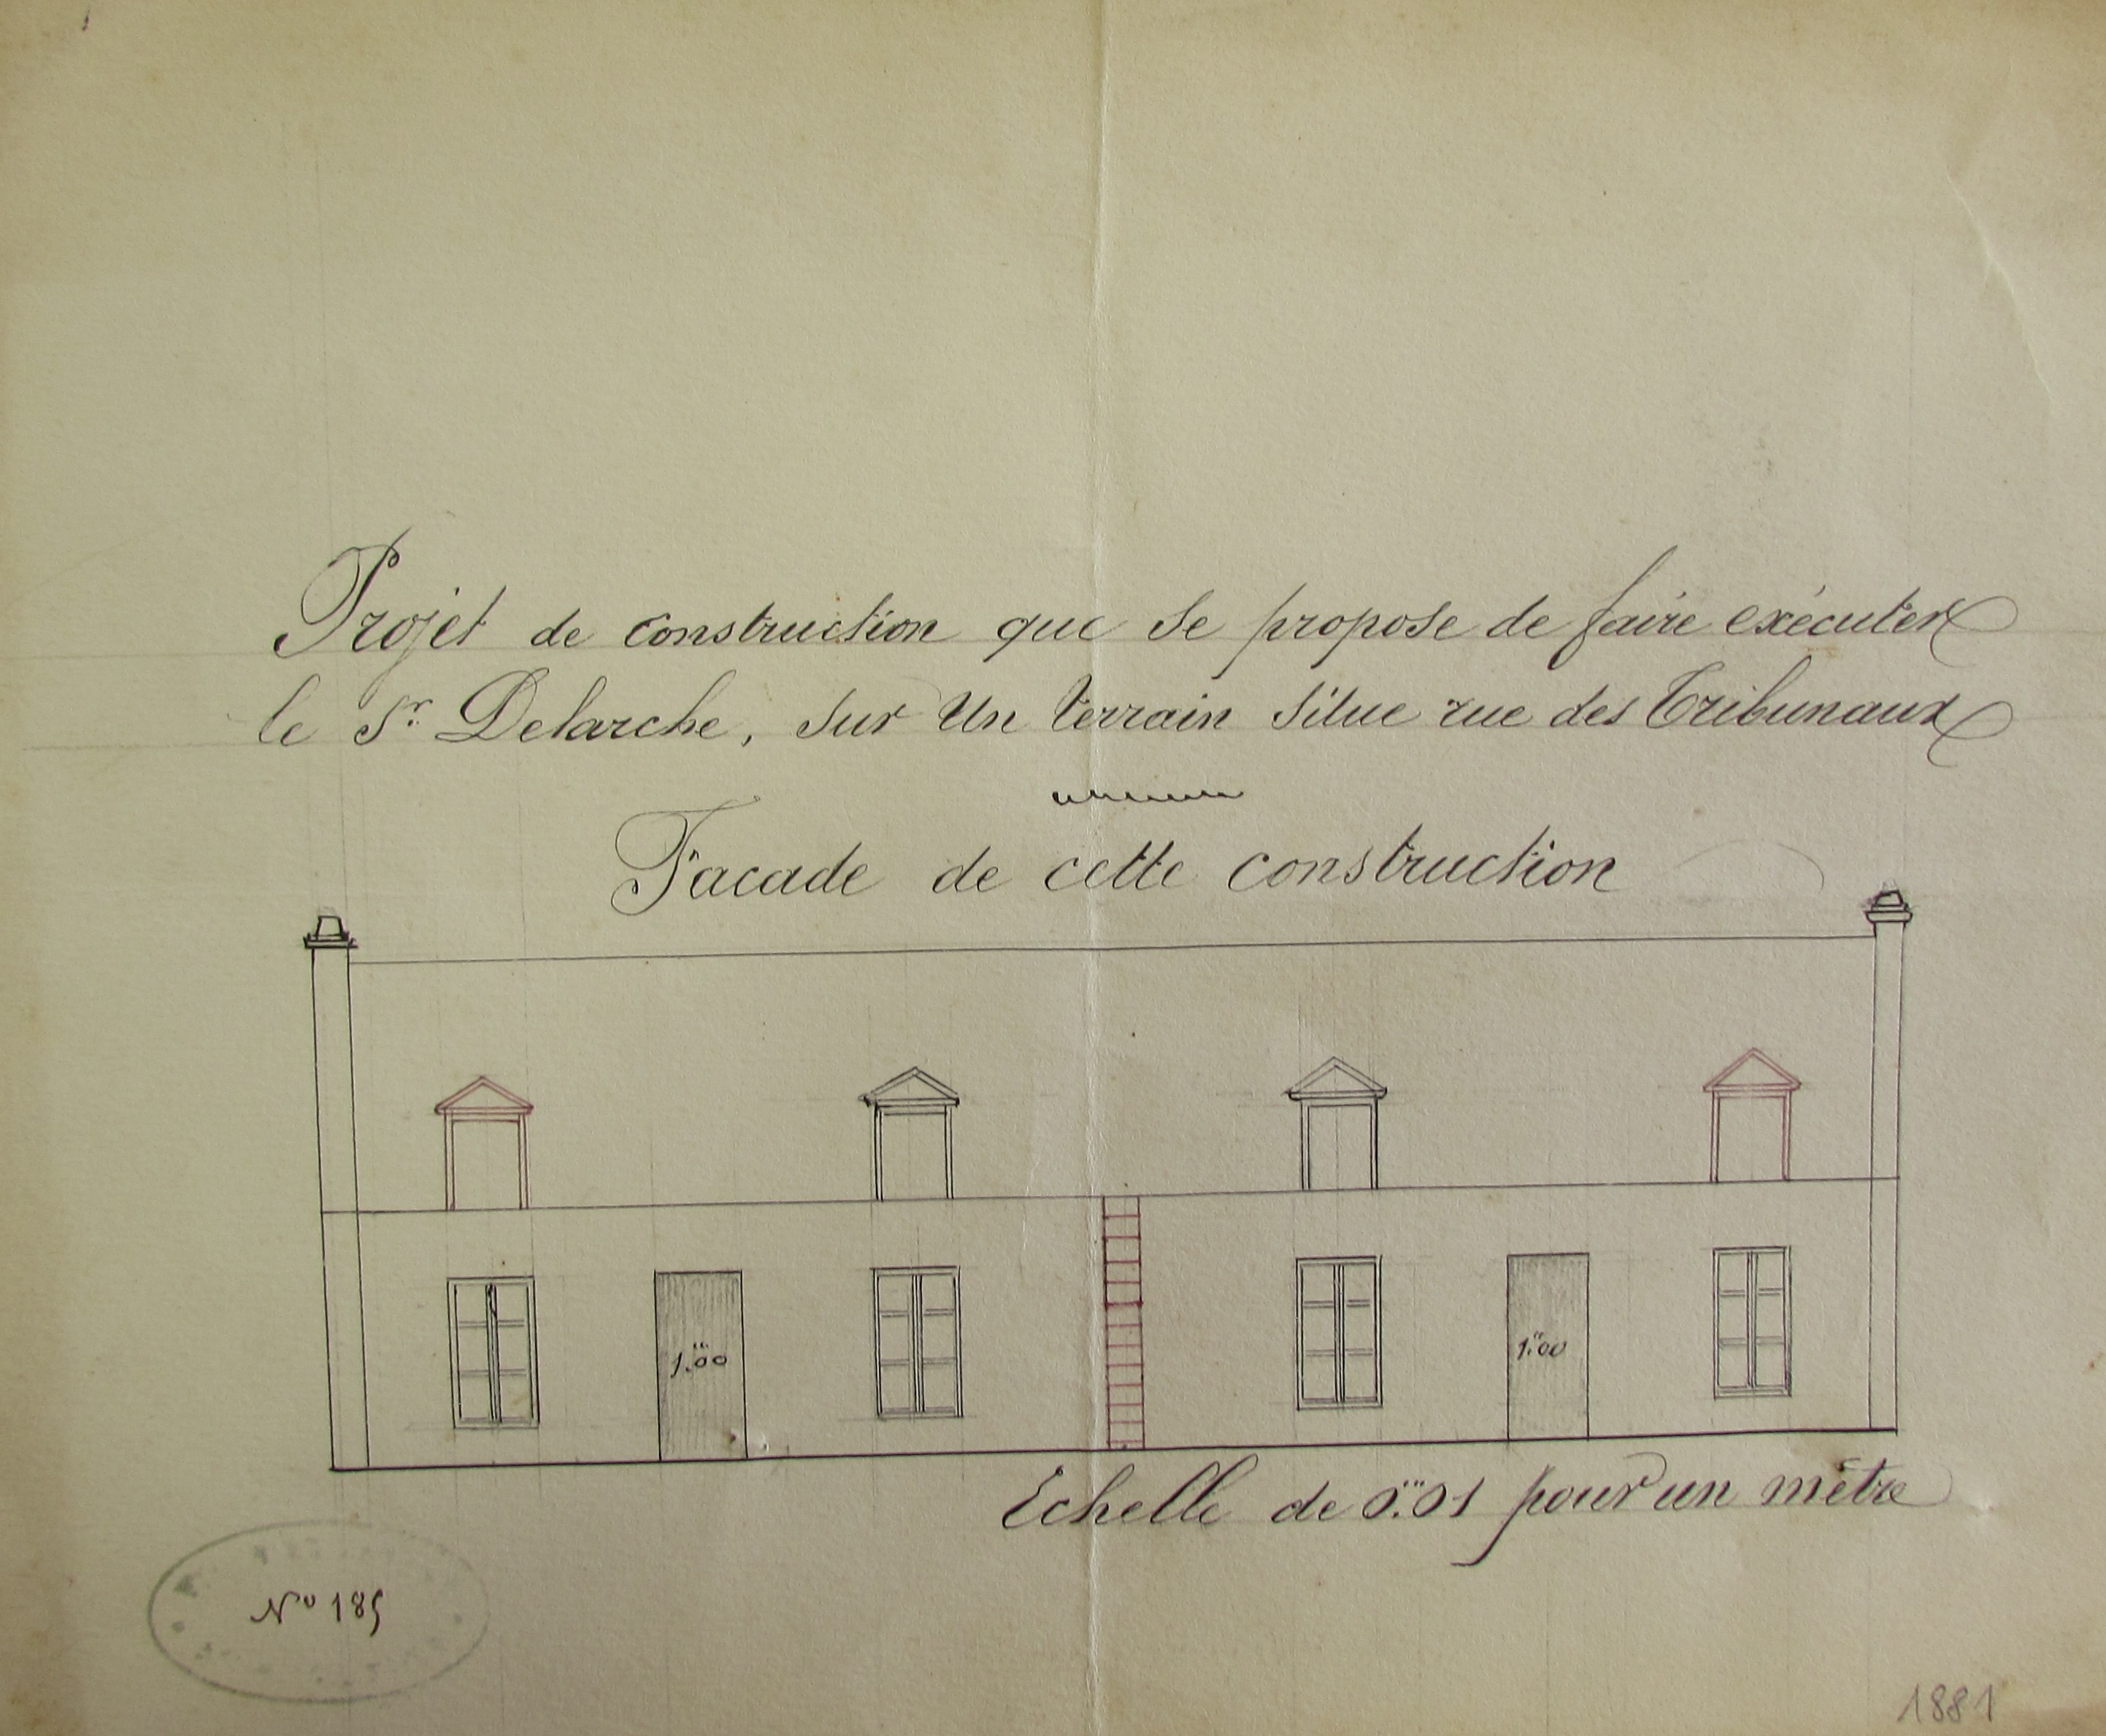 Projet de construction que se propose de faire exécuter
le Sr. Delarche, sur un terrain situe rue des Tribunaux
Facade de cette construction
1.m00
1.m00
Echelle de 0.m01 pour un mètre
No 185
1881